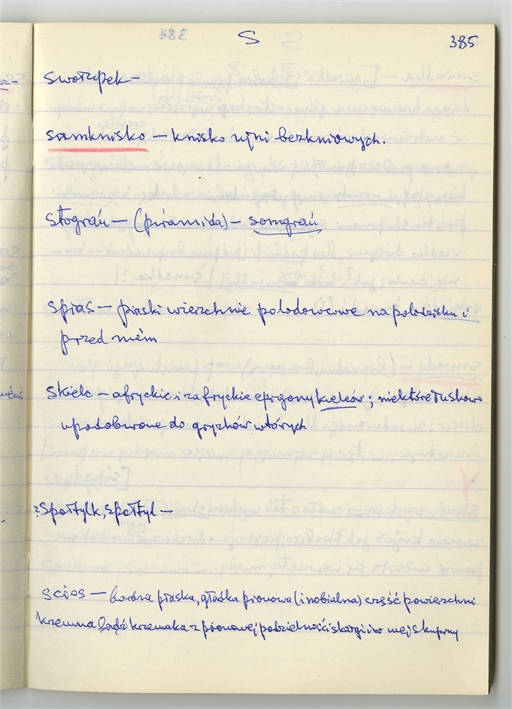 S 385
swołcpek —
samknisko — knisko
stograń — (piramida) — somgrań
spias — piaski wierzchnie polodowcowe na połodzisku i
przed niém
skielc — afryckie i zafryckie epigony kielców; niektóre łuskowo
upodobnione do gryzków wtórych
społtylk, społtyl —
scios — bardzo płaska, gładka pionowa (inobialna) część powierzchni
krzemna bądź krzemaka z pionowej podzielności skargi i w niej skupiny